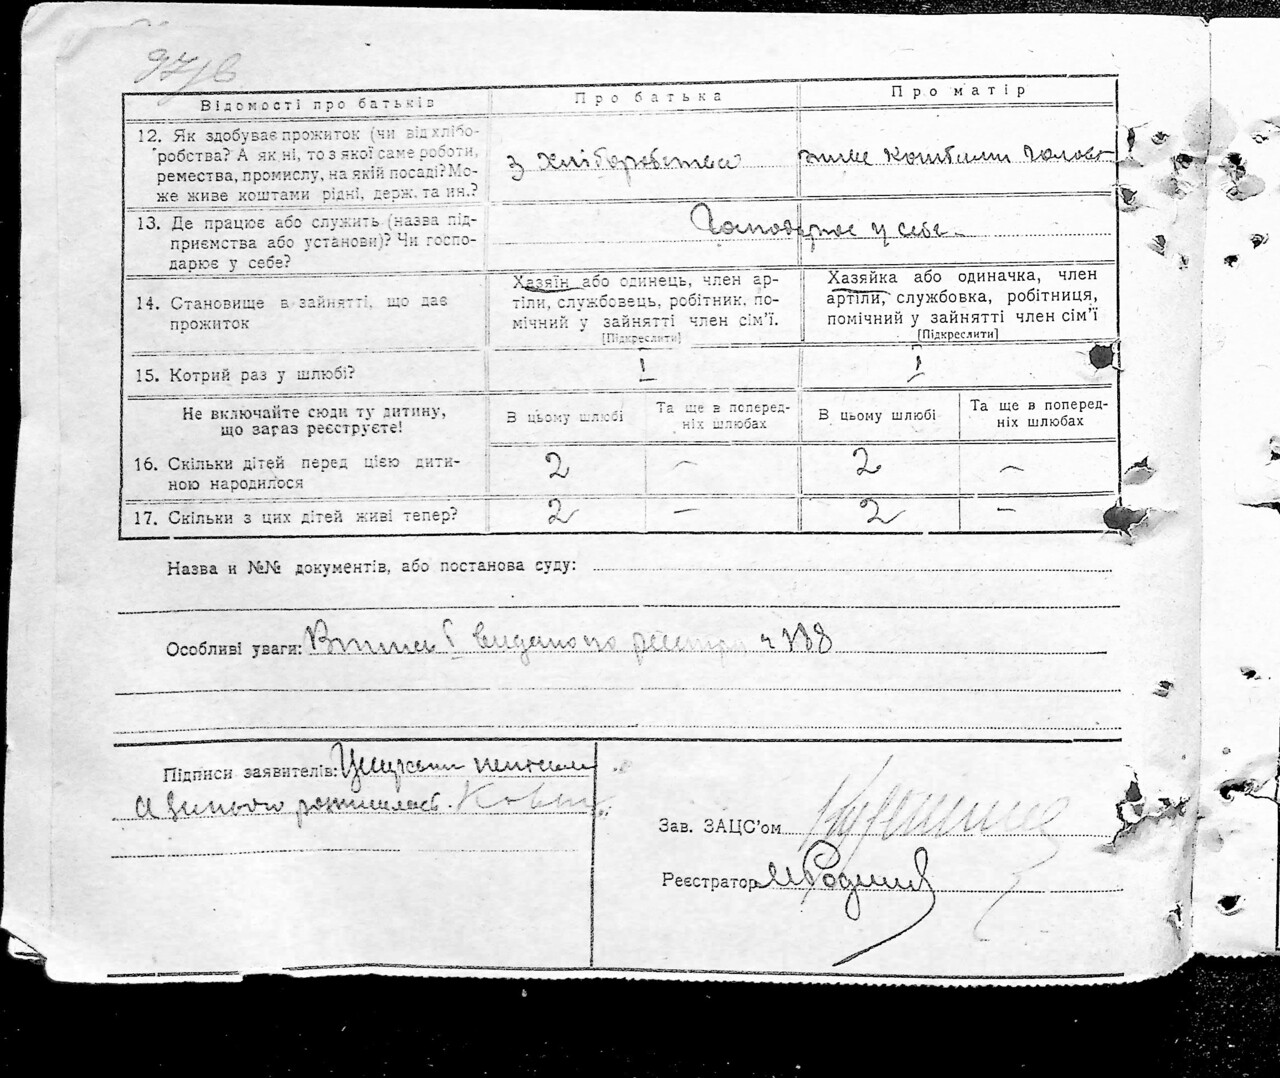 97/6
Відомості про батьків
Про батька
Про матір
12. Як здобуває прожиток (чи від хлібо-
робства? А як ні, то з якої саме роботи,
ремества, промислу, на якій посаді? Мо-
же живе коштами рідні, держ. та ин.?
з хліборобства
живе коштами голови
13. Де працює або служить (назва під-
приємства або установи)? Чи госпо-
дарює у себе?
Господарює у себе
14. Становище в зайнятті, що дає
прожиток
Хазяїн або одинець, член ар-
тіли, службовець, робітник, по-
мічний у зайнятті член сім'ї.
[Підкреслити]
Хазяйка або одиначка, член
артіли, службовка, робітниця,
помічний у зайнятті член сім'ї
[Підкреслити]
15. Котрий раз у шлюбі?
I
I
Не включайте сюди ту дитину,
що зараз реєструєте!
В цьому шлюбі
Та ще в поперед-
ніх шлюбах
В цьому шлюбі
Та ще в попоред-
ніх шлюбах
16. Скільки дітей перед цією дити-
ною народилося
2
—
2
—
17. Скільки з цих дітей живі тепер?
2
—
2
—
Назва и №№ документів, або постанова суду:
Особливі уваги: видано по реєстру
Підписи заявителів:
Зав. ЗАЦС'ом
Реєстратор